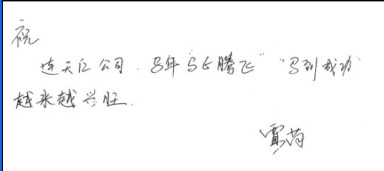 祝
连天红公司。马年马上腾飞“马到成功”
越来越兴旺.
雷茜